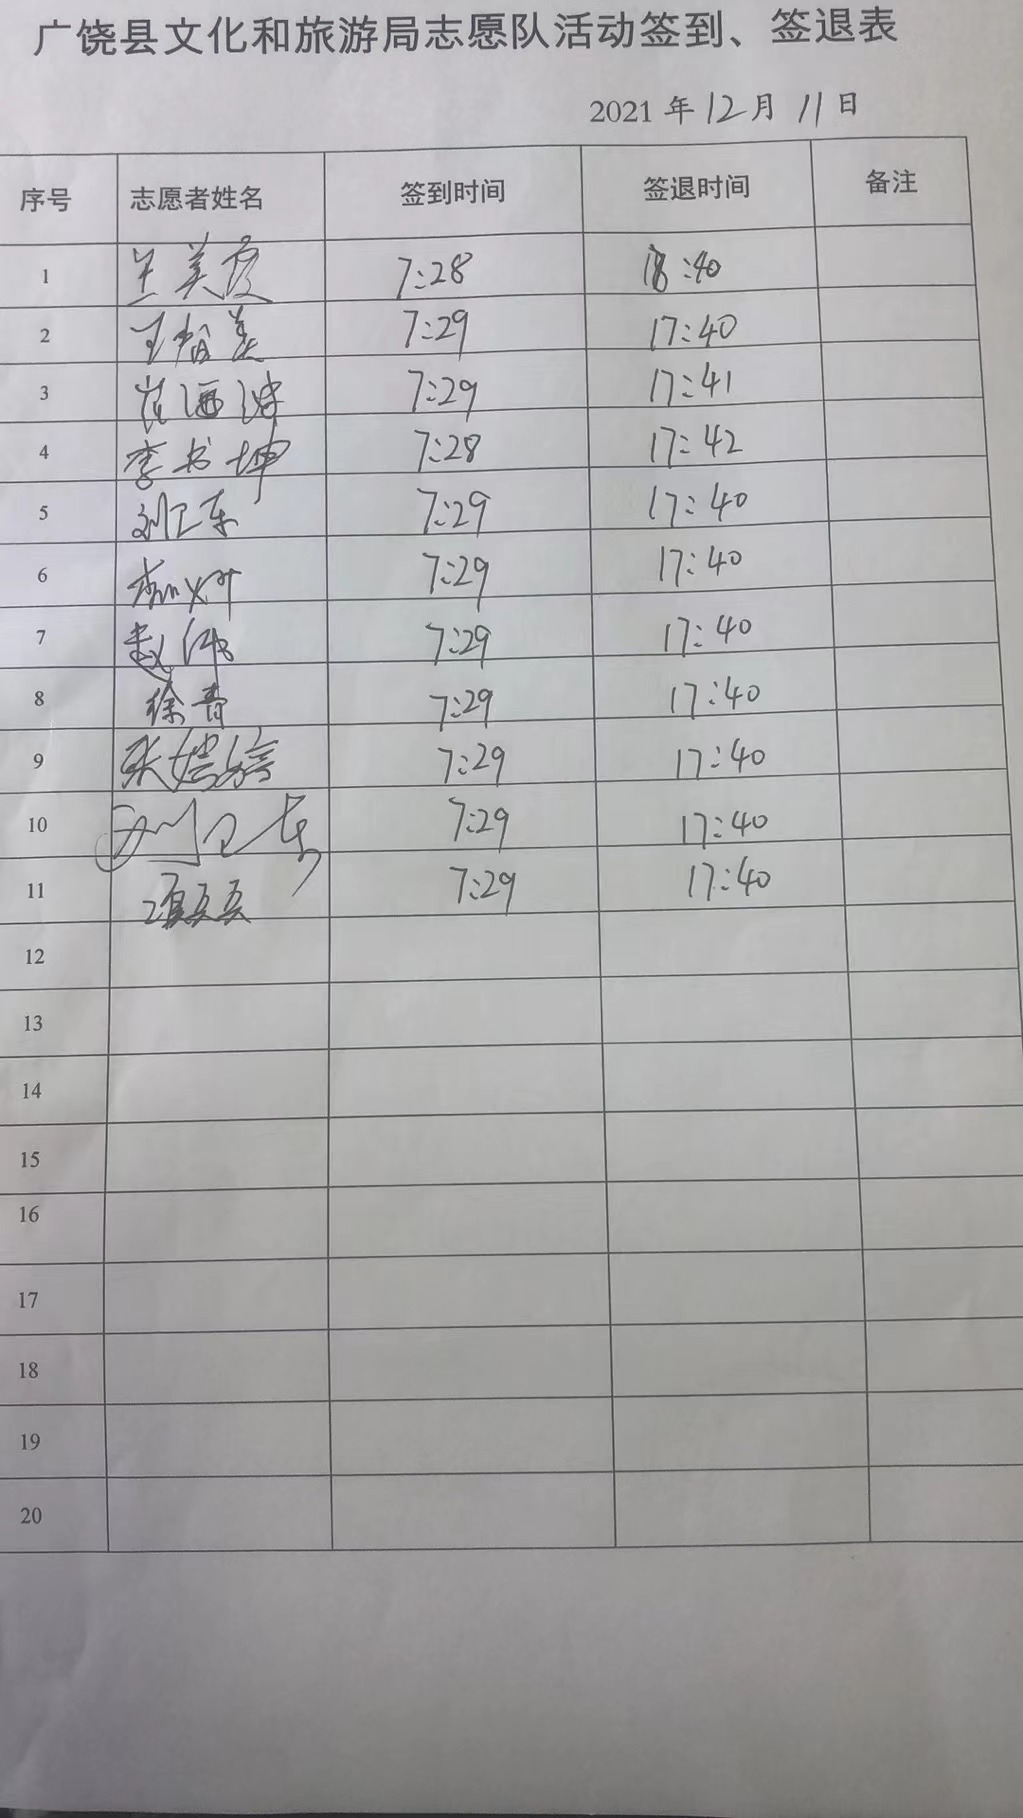 广饶县文化和旅游局志愿队活动签到、签退表
2021 年 12 月 11 日
序号 志愿者姓名 签到时间 签退时间 备注
1 王美霞 7:28 18:40
2 7:29 17:40
3 崔 7:29 17:41
4 李书坤 7:28 17:42
5 刘卫东 7:29 17:40
6 7:29 17:40
7 赵伟 7:29 17:40
8 徐青 7:29 17:40
9 张婷婷 7:29 17:40
10 刘卫东 7:29 17:40
11 项真真 7:29 17:40
12
13
14
15
16
17
18
19
20